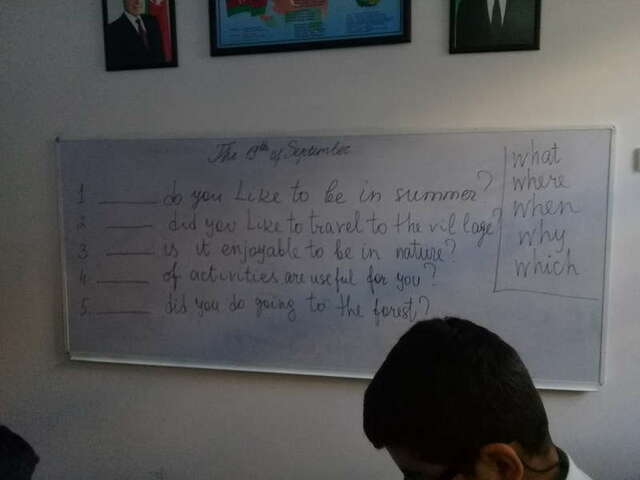 The 19th of September
1 ______ do you Like to be in summer?
2 ______ did you Like to travel to the village?
3 ______ is it enjoyable to be in nature?
4. ______ of activities are useful for you?
5. ______ did you do going to the forest?
what
where
when
why
which